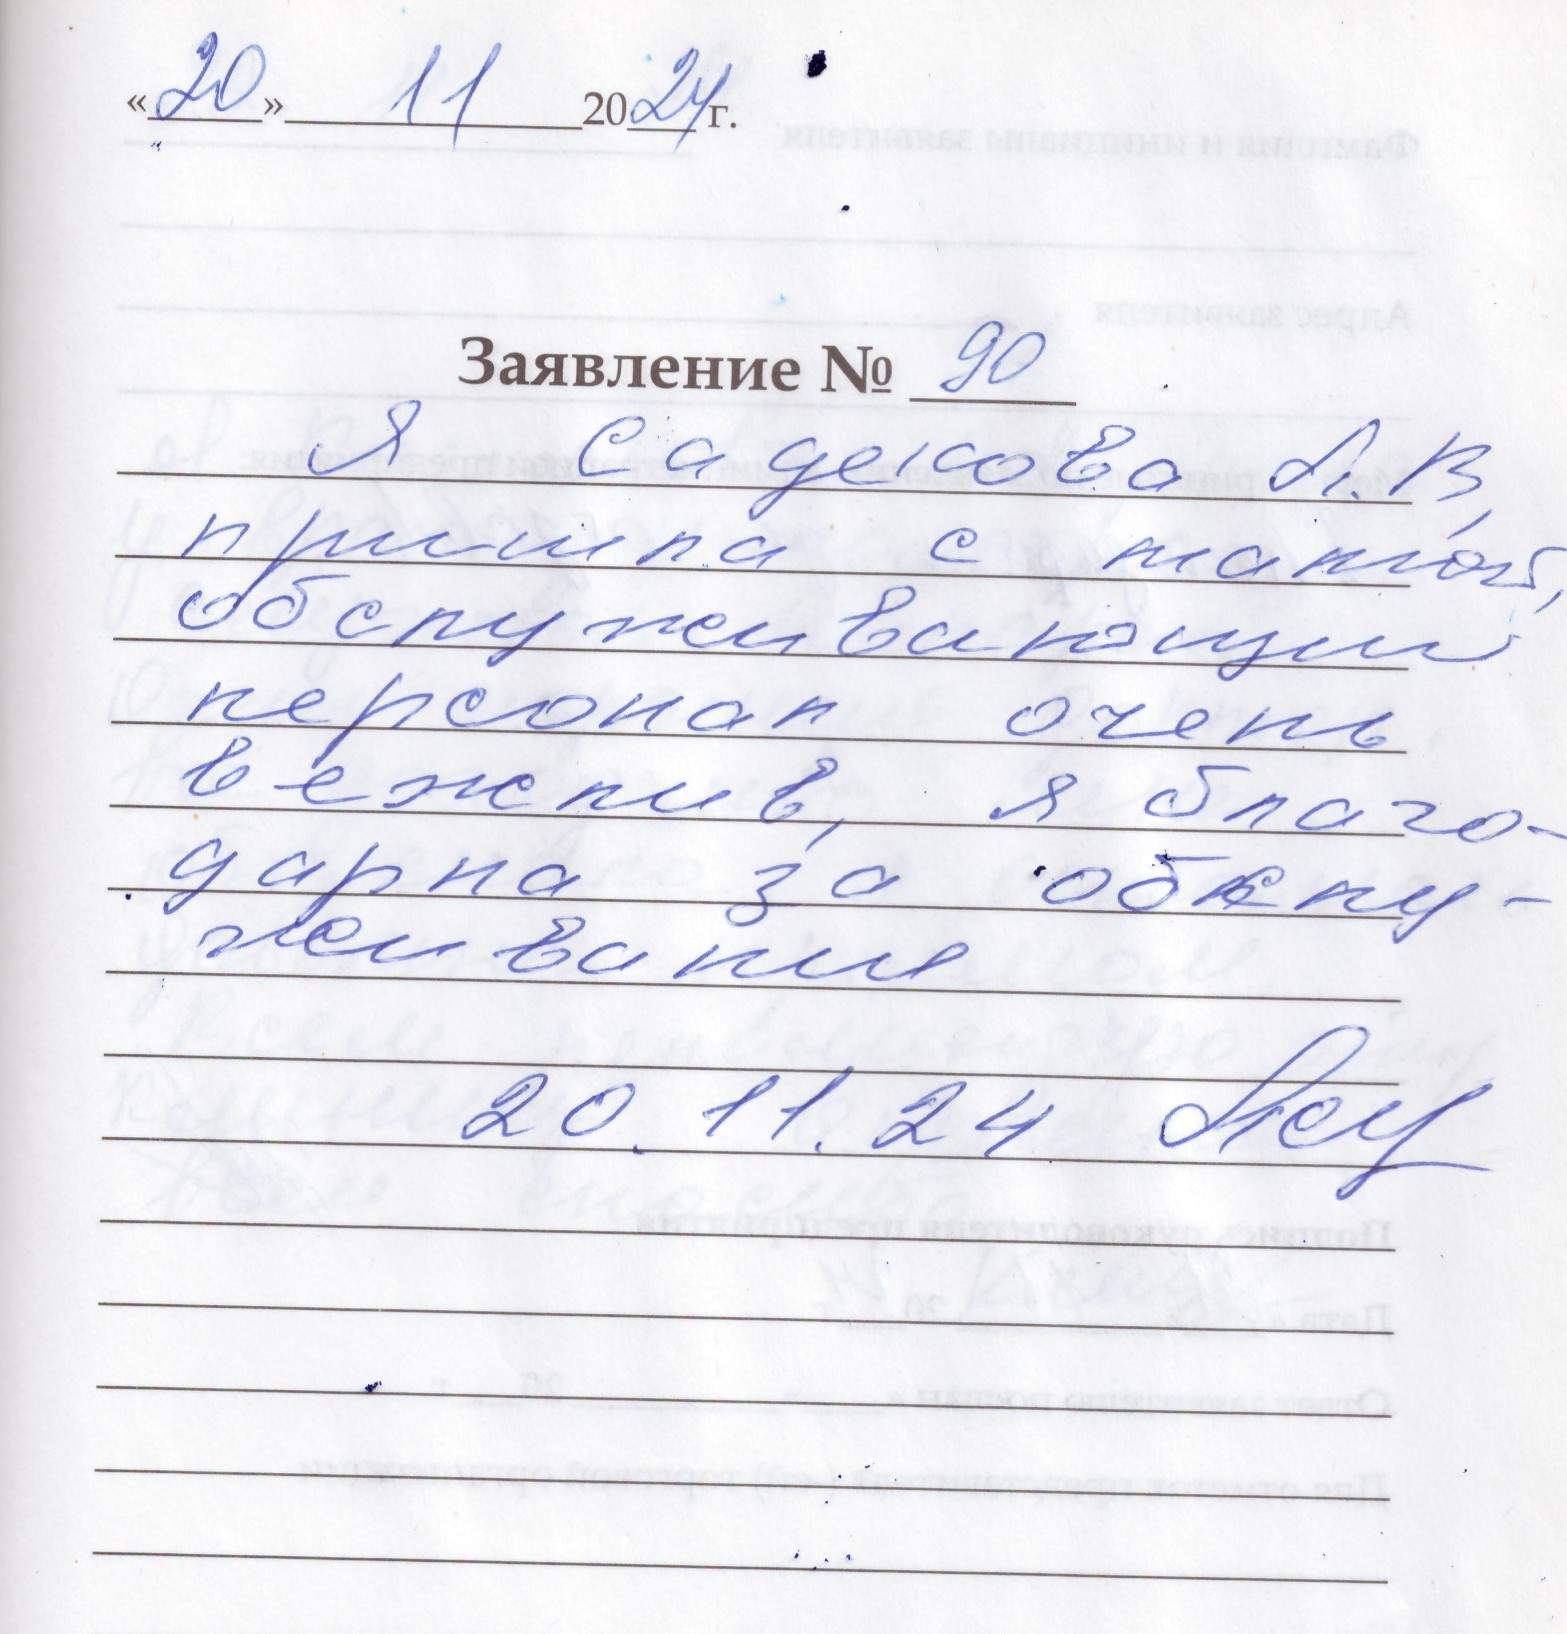 «20» 11 2024 г.
Заявление № 90
Я Садекова А.В,
пришла с мамой,
обслуживающий
персонал очень
вежлив, я благо-
дарна за обслу-
живание
20.11.24